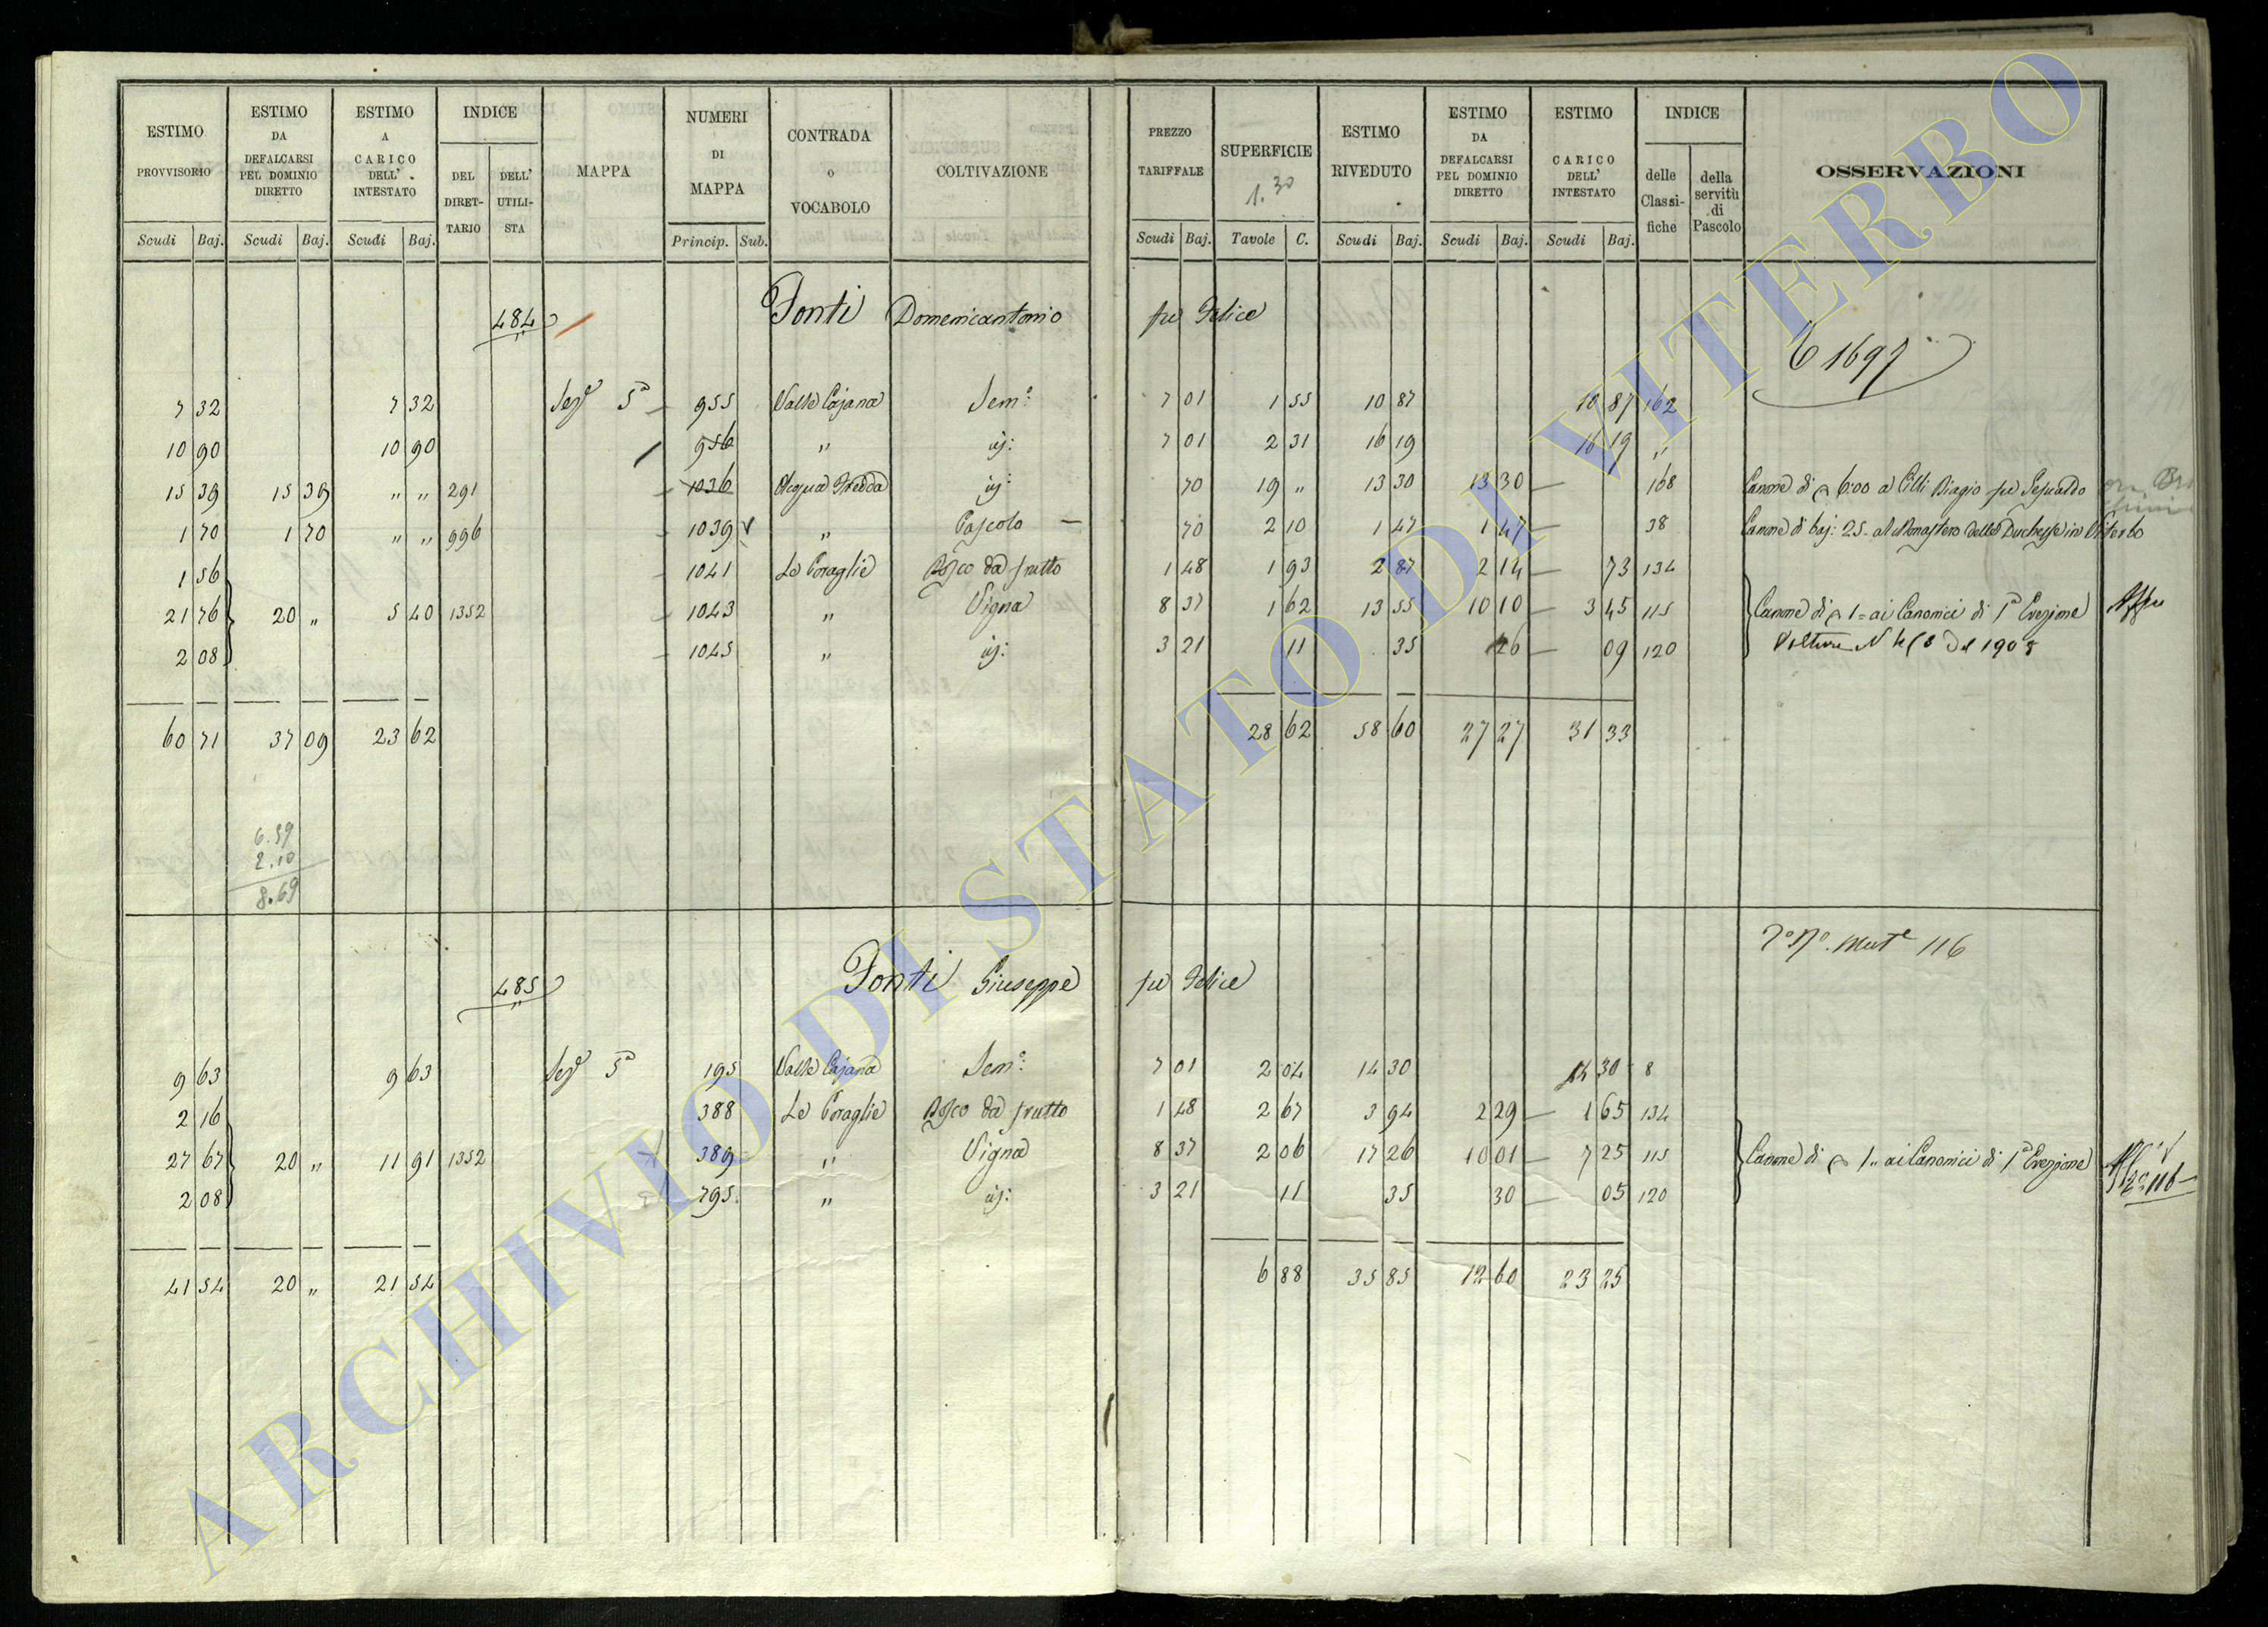 ESTIMO PROVVISORIO | ESTIMO DA DEFALCARSI PEL DOMINIO DIRETTO | ESTIMO A CARICO DELL' INTESTATO | INDICE | MAPPA | NUMERI DI MAPPA | CONTRADA o VOCABOLO | COLTIVAZIONE | PREZZO TARIFFALE | SUPERFICIE | ESTIMO RIVEDUTO | ESTIMO DA DEFALCARSI PEL DOMINIO DIRETTO | ESTIMO A CARICO DELL' INTESTATO | INDICE | OSSERVAZIONI
DEL DIRETTARIO | DELL' UTILISTA | 1.30 | delle Classifiche | della servitù di Pascolo
Scudi | Baj. | Scudi | Baj. | Scudi | Baj. | Princip. | Sub. | Scudi | Baj. | Tavole | C. | Scudi | Baj. | Scudi | Baj. | Scudi | Baj.
484 Fonti Domenicantonio fu Felice
1697
7 32 | 7 32 | Sez. 5a | 955 | Valle Cajana | Sem.o | 7 01 | 1 55 | 10 87 | 10 87 | 162
10 90 | 10 90 | 956 | " | id: | 7 01 | 2 31 | 16 19 | 16 19 | "
15 39 | 15 39 | " " | 291 | 1036 | Acqua Fredda | id: | 70 | 19 " | 13 30 | 13 30 | 168 | Canone di 6:00 a Cilli Biagio fu Gesualdo
1 70 | 1 70 | " " | 996 | 1039 | " | Pascolo | 70 | 2 10 | 1 47 | 1 47 | 38 | Canone di baj: 25 al Monastero delle Duchesse in Viterbo
1 56 | 1041 | Le Coraglie | Bosco da frutto | 1 48 | 1 93 | 2 87 | 2 14 | 73 | 134
21 76 | 20 " | 5 40 | 1352 | 1043 | " | Vigna | 8 37 | 1 62 | 13 55 | 10 10 | 3 45 | 115 | Canone di 1= ai Canonici di 1a Erezione
2 08 | 1045 | " | id: | 3 21 | 11 | 35 | 26 | 09 | 120 | Volture N del 1903
60 71 | 37 09 | 23 62 | 28 62 | 58 60 | 27 27 | 31 33
6.59
2.10
8.69
Mut.e 116
485 Fonti Giuseppe fu Felice
9 63 | 9 63 | Sez. 5a | 195 | Valle Cajana | Sem.o | 7 01 | 2 04 | 14 30 | 14 30 | 8
2 16 | 388 | Le Coraglie | Bosco da frutto | 1 48 | 2 67 | 3 94 | 2 29 | 1 65 | 134
27 67 | 20 " | 11 91 | 1352 | 389 | " | Vigna | 8 37 | 2 06 | 17 26 | 10 01 | 7 25 | 115 | Canone di 1" ai Canonici di 1a Erezione
2 08 | 795 | " | id: | 3 21 | 11 | 35 | 30 | 05 | 120
41 54 | 20 " | 21 54 | 6 88 | 35 85 | 12 60 | 23 25
ARCHIVIO DI STATO DI VITERBO